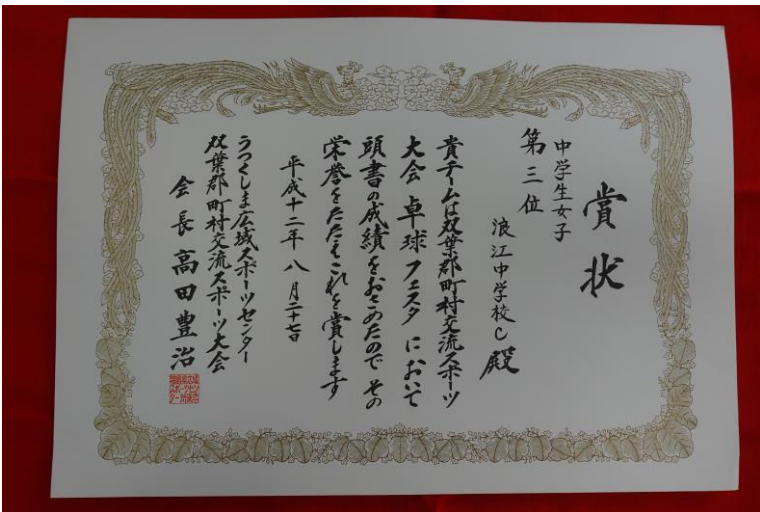 賞状
中学生女子
第三位
浪江中学校C殿
貴チームは双葉郡町村交流スポーツ
大会卓球フェスタにおいて
頭書の成績をおさめたのでその
栄誉をたたえこれを賞します
平成十二年八月二十七日
うつくしま広域スポーツセンター
双葉郡町村交流スポーツ大会
会長 高田豊治